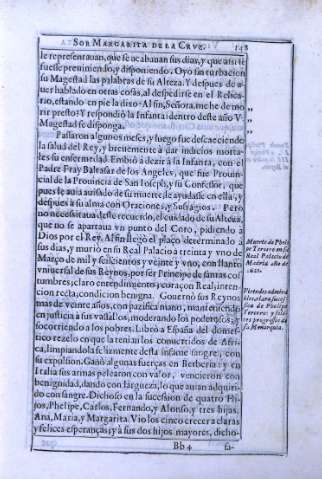 SOR MARGARITA DE LA CRVZ. 148
le representauan, que se acabauan sus dias, y que assi se
fuesse preuiniendo, y disponiendo. Oyò sin turbacion
su Magestad las palabras de su Alteza. Y despues de a-
uer hablado en otras cosas, al despedirse en el Relica-
rio, estando en pie la dixo: Al fin, Señora, me he de mo-
rir presto? Y respondiò la Infanta: dentro deste año V.
Magestad se disponga.
Passaron algunos meses, y luego fue descaeciendo
la salud del Rey, y breuemente à dar indicios morta-
les su enfermedad. Embiò à dezir à la Infanta, con el
Padre Fray Baltasar de los Angeles, que fue Prouin-
cial de la Prouincia de San Ioseph, y su Confessor, que
pues le auia auisado de su muerte, le ayudasse en ella, y
despues à su alma con Oraciones, y Sufragios. Pero
no necessitaua deste recuerdo, el cuidado de su Alteza,
que no se apartaua vn punto del Coro, pidiendo à
Dios por el Rey. Al fin llegò el plaço determinado à
sus dias, y muriò en su Real Palacio à treinta y vno de
Março de mil y seiscientos y veinte y vno, con llanto
vniuersal de sus Reynos, por ser Principe de santas cos-
tumbres, claro entendimiento, coraçon Real, inten-
cion recta, condicion benigna. Gouernò sus Reynos
mas de veinte años, con pazifica mano, manteniendo
en justicia à sus vassallos, moderando los poderosos, y
socorriendo à los pobres. Librò à España del domes-
tico rezelo en que la tenian los conuertidos de Afri-
ca, limpiandola felizmente desta infame sangre, con
su expulsion. Ganò algunas fuerças en Berberia: y en
Italia sus armas pelearon con valor, vencieron con
benignidad, dando con largueza, lo que auian adquiri-
do con sangre. Dichoso en la sucession de quatro Hi-
jos, Phelipe, Carlos, Fernando, y Alonso, y tres hijas,
Ana, Maria, y Margarita. Viò los cinco crecer à claras
y felices esperanças; y à sus dos hijos mayores, dicho-
Bb 4 sa-
Muerte de Phili-
pe Tercero en su
Real Palacio de
Madrid año de
1621.
Virtudes admira-
bles,
de Phelipe
Tercero; y
progressos de
su Monarquia.